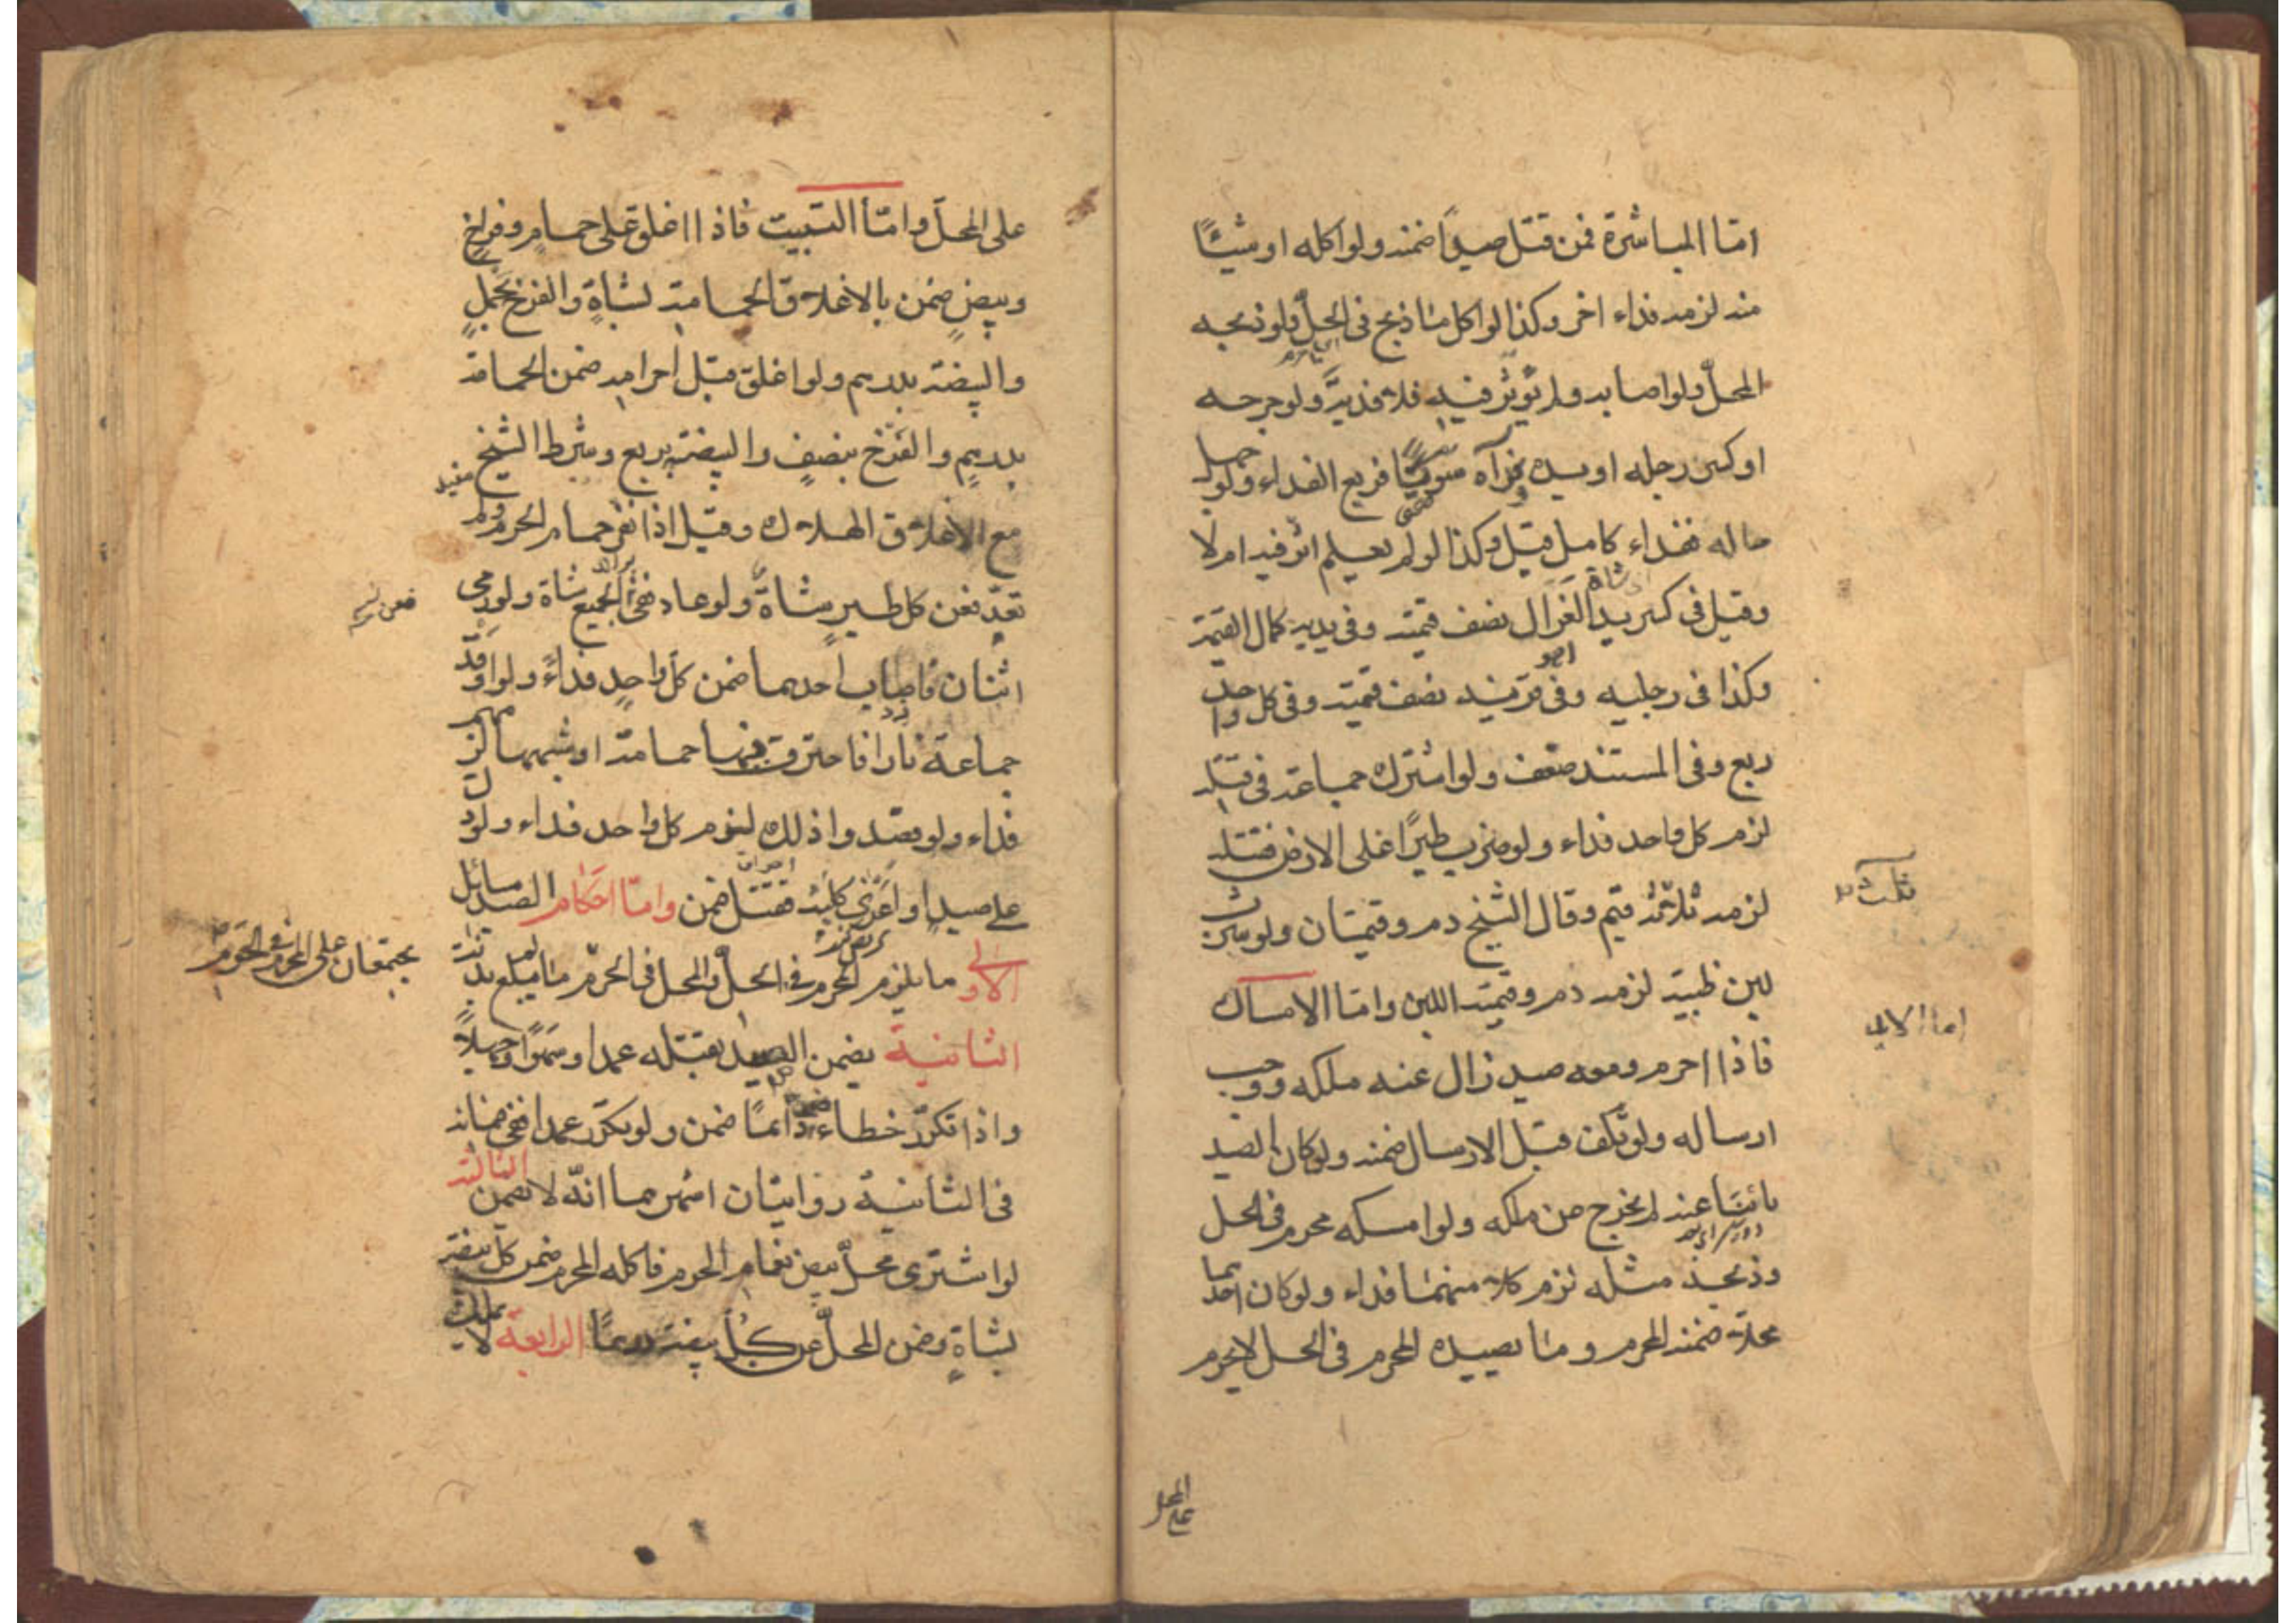 امّا المباشرة فمن قتل صيداً ضمنه ولو اكله او شيئًا
منه لزمه فداء اخر وكذا لو اكل ما ذبح فى الحلّ ولو ذبحه
المحلّ ولو اصابه ولم يؤثر فيه فلا فدية ولو جرحه
او كسر رجله او يده ورآه سويًّا فربع الفداء ولو جهل
حاله ففداء كامل قيل وكذا لو لم يعلم اثر فيه ام لا
وقيل فى كسر يد الغزال نصف قيمته وفى يديه كمال القيمة
وكذا فى رجليه وفى قرنيه نصف قيمته وفى كل واحد
ربع وفى المستند ضعف ولو اشترك جماعة فى قتله
لزم كل واحد فداء ولو ضرب طيرًا على الارض فقتله
لزمه ثلاثة قيم وقال الشيخ دم وقيمتان ولو شرب
لبن ظبية لزمه دم وقيمة اللبن وامّا الامساك
فاذا احرم ومعه صيد زال عنه ملكه ووجب
ارساله ولو تلف قبل الارسال ضمنه ولو كان الصيد
نائيًا عنه لم يخرج عن ملكه ولو امسكه محرم فى الحل
وذبحه مثله لزم كلا منهما فداء ولو كان احدهما
محلا ضمنه المحرم وما يصيده المحرم فى الحل لا يحرم
على المحل
على المحلّ وامّا التسبيب فاذا اغلق على حمام وفراخ
وبيض ضمن بالاغلاق الحمامة بشاةٍ والفرخ بحملٍ
والبيضة بدرهم ولو اغلق قبل احرامه ضمن الحمامة
بدرهم والفرخ بنصفٍ والبيضة بربع وشرط الشيخ
مع الاغلاق الهلاك وقيل اذا نفر حمام الحرم ولم
تعد فعن كل طير شاةٌ ولو عاد فعن الجميع شاة ولو رمى
اثنان فاصاب احدهما ضمن كل واحدٍ فداءً ولو اوقد
جماعة نارا فاحترق فيها حمامة او شبهها لزمهم
فداء ولو قصدوا ذلك لزم كل واحد فداء ولو دل
على صيدٍ او اغرى كلبه فقتل ضمن وامّا احكام الصيد فمسائل
الاولى ما يلزم المحرم فى الحلّ والمحل فى الحرم ما لم يبلغ بدنة
يجتمعان على المحرم فى الحرم
الثانية يضمن الصيد بقتله عمدا وسهوًا وجهلاً
واذا تكرّر خطاء دائمًا ضمن ولو تكرّر عمدا ففى ضمانه
فى الثانية روايتان اشهرهما انّه لا يضمن الثالثة
لو اشترى محلّ بيض نعام لمحرم فاكله المحرم ضمن كل بيضة
بشاةٍ وضمن المحلّ عن كلّ بيضة درهمًا الرابعة لا يملك